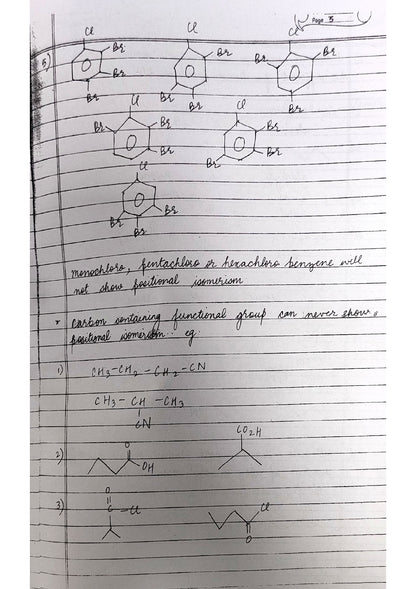 Page 3
5)
Cl Cl Cl
Br Br Br
Br Br
Br Br Br Br
Cl Cl
Br Br Br
Br Br Br
Cl
Br Br
Br
monochloro, pentachloro or hexachloro benzene will
not show positional isomerism
* Carbon containing functional group can never show
positional isomerism. eg.
1) CH3-CH2-CH2-CN
CH3-CH-CH3
CN
2) O OH CO2H
3) O C-Cl Cl O